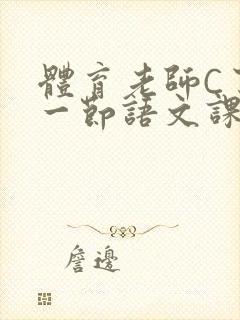 體育老師C
一節語文課
詹邊